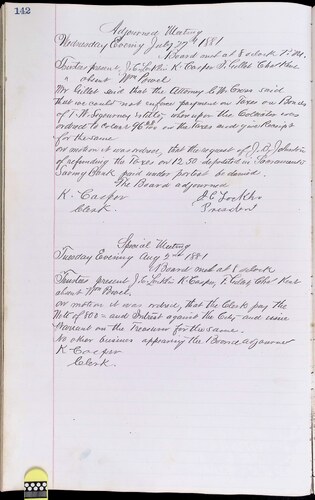 142
Adjourned Meeting
Wednesday Evening July 27th 1881
Board met at 8 o clock P. M.
Trustees present, J. C. K. Casper T. Gillet Chas Kent
" absent Wm Powel
Mr Gillet said that the Attorney C. W. Cross said
that we could not enforce payment on Taxes on Bonds
of T. W. Sigourney's when upon the Collector was
ordered to on the Taxes and give Receipt
for the same
on motion it was ordered, that the request of J. B. Johnston
of refunding the Taxes on 1250 deposited in Sacramento
Saving Bank paid under protest be denied.
The Board adjourned
K. Casper
Clerk.
J. C.
President
Special Meeting
Tuesday Evening Aug 2nd 1881
Board met at 8 o clock
Trustees present J. C. K. Casper, T. Gillet Chas Kent
absent Wm Powel.
on motion it was ordered, that the Clerk pay the
Note of 800 = and Interest against the City and issue
Warrant on the Treasurer for the same.
No other business appearing the Board adjourned
K. Casper
Clerk.